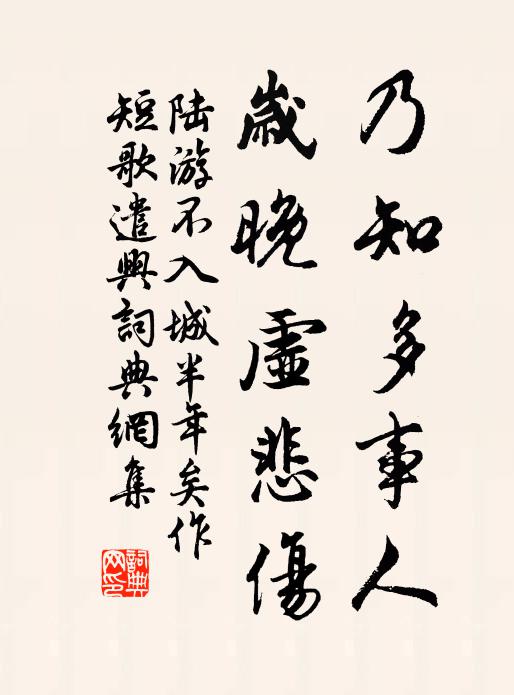 乃知多事人
歲晚虛悲傷
陆游不入城半年矣作
短歌遣興詞典網集
詞典
网印